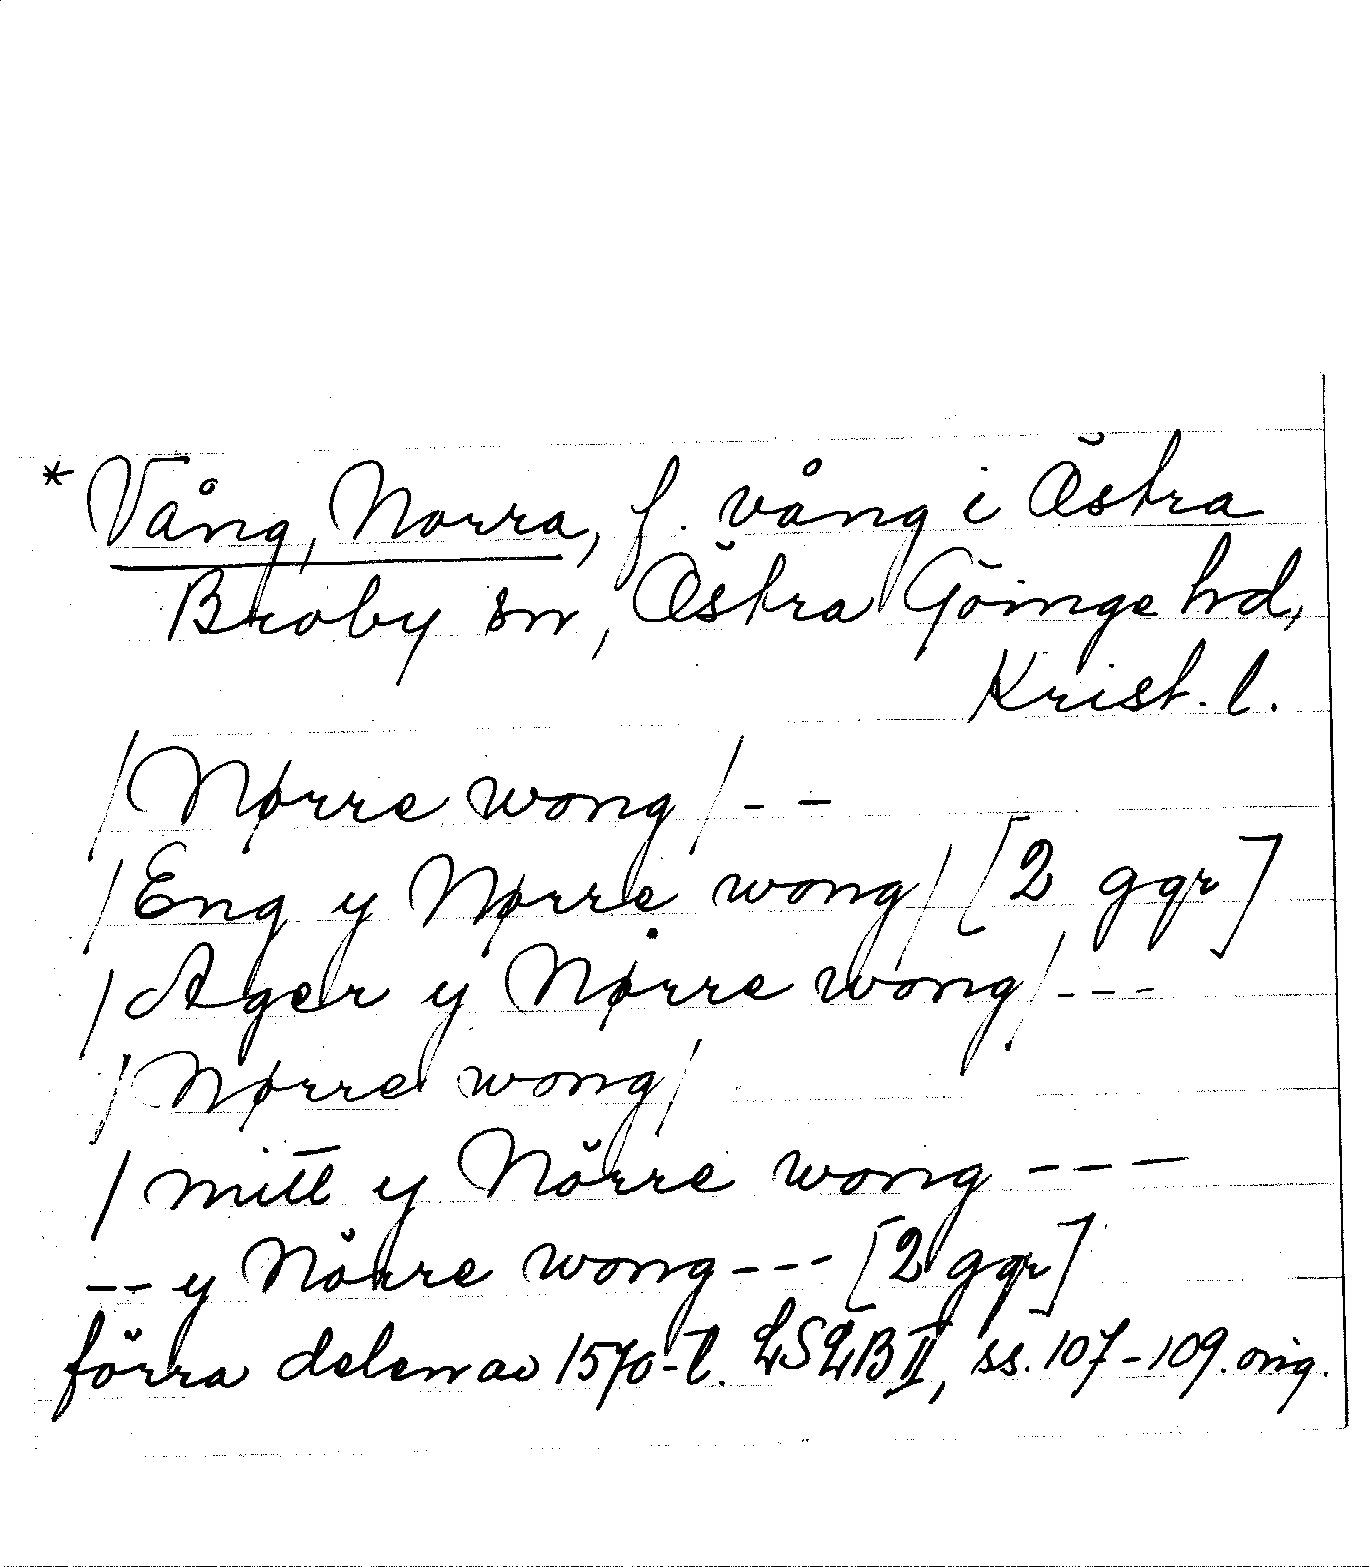 * Vång, Norra, f. vång i Östra
Broby sn, Östra Göinge hd,
Krist. l.
/Nørre wong/ - -
/Eng y Nørre wong/ [2 ggr]
/Ager y Nørre wong/ - - -
/Nørre wong/
/mitt y Nörre wong - - -
- - y Nörre wong - - - [2 ggr]
förra delen av 1570-t. LSLB II, ss. 107-109. orig.